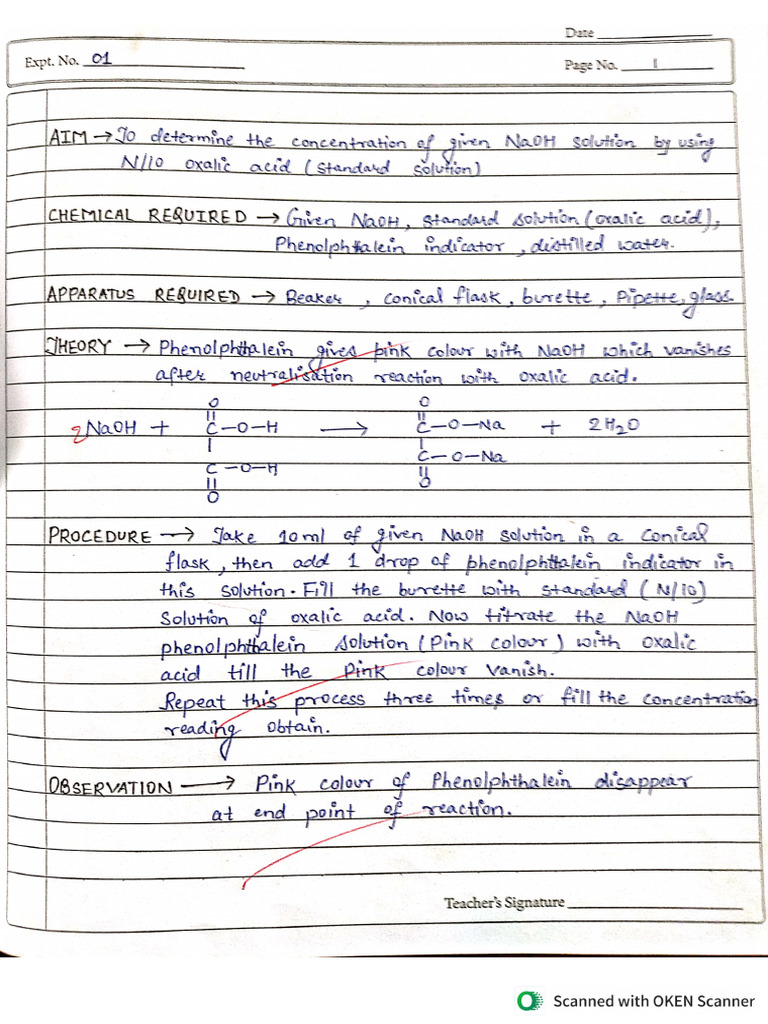 Date
Expt. No. 01
Page No. 1
AIM → To determine the concentration of given NaOH solution by using
N/10 oxalic acid (standard solution)
CHEMICAL REQUIRED → Given NaOH, standard solution (oxalic acid),
Phenolphthalein indicator, distilled water.
APPARATUS REQUIRED → Beaker, conical flask, burette, Pipette, glass.
THEORY → Phenolphthalein gives pink colour with NaOH which vanishes
after neutralisation reaction with oxalic acid.
O O
|| ||
2NaOH + C-O-H → C-O-Na + 2H2O
| |
C-O-H C-O-Na
|| ||
O O
PROCEDURE → Take 10ml of given NaOH solution in a conical
flask, then add 1 drop of phenolphthalein indicator in
this solution. Fill the burette with standard (N/10)
Solution of oxalic acid. Now titrate the NaOH
phenolphthalein solution (Pink colour) with oxalic
acid till the pink colour vanish.
Repeat this process three times or fill the concentration
reading obtain.
OBSERVATION → Pink colour of Phenolphthalein disappear
at end point of reaction.
Teacher's Signature
Scanned with OKEN Scanner